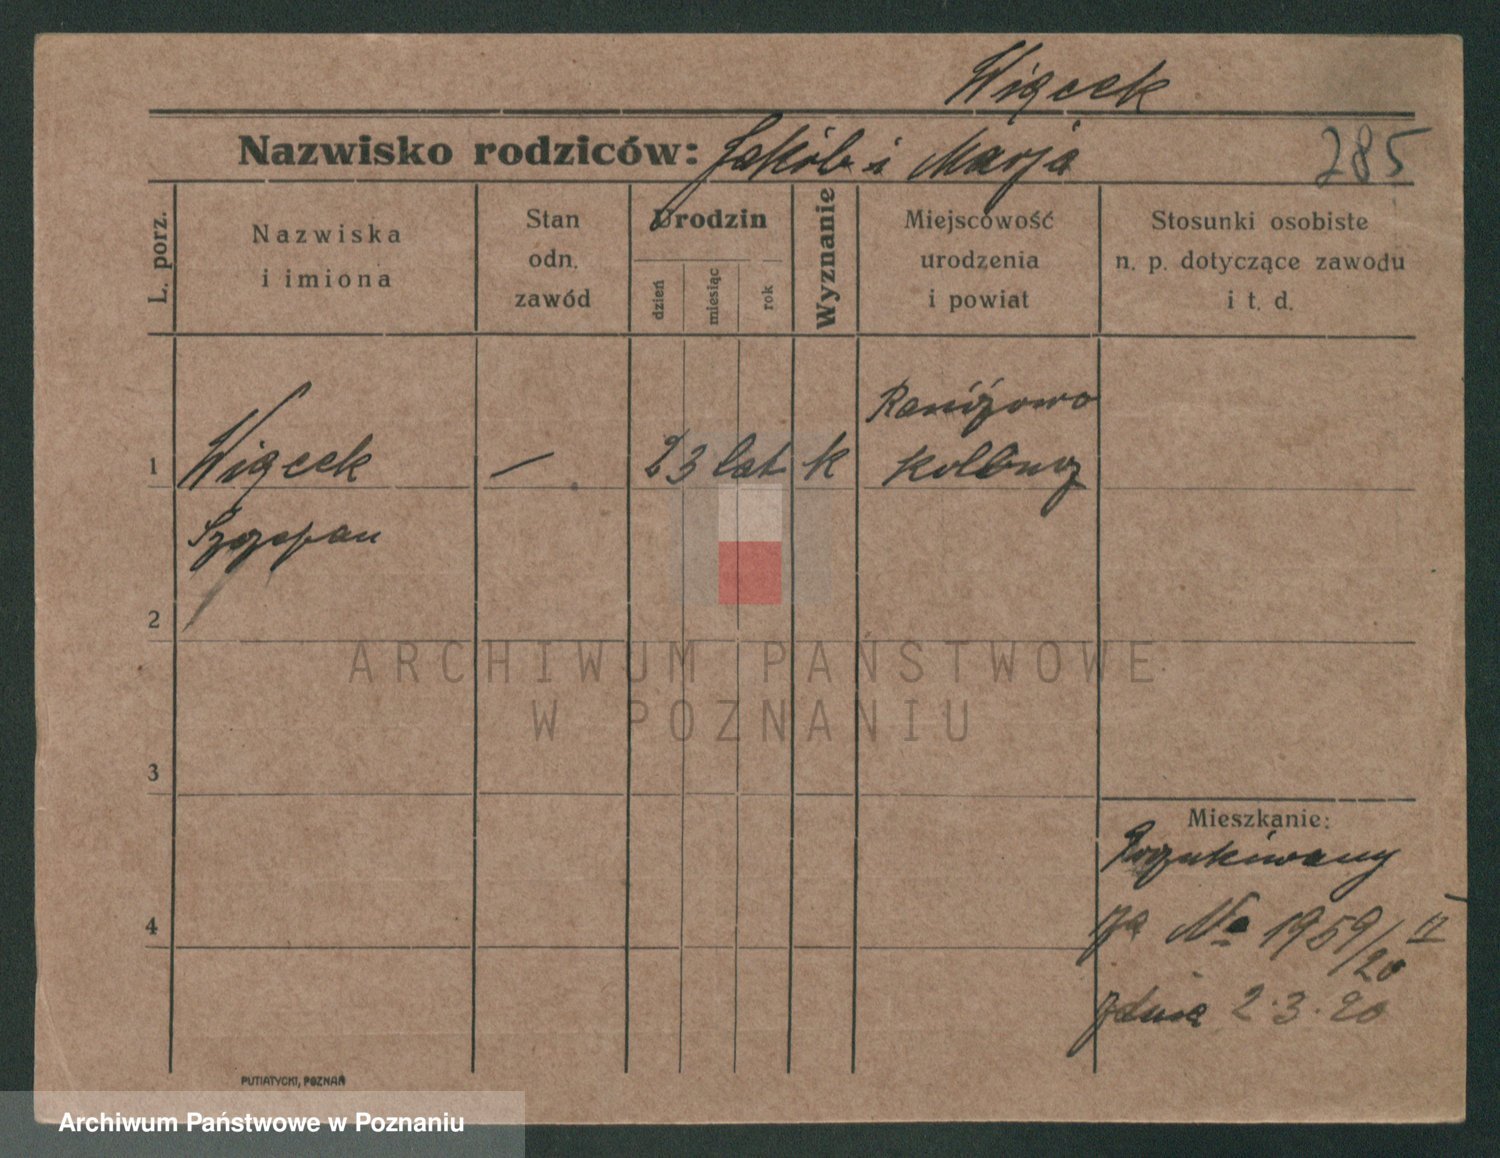 Wiącek
Nazwisko rodziców: Jakób i Marja
285
L. porz.
Nazwiska
i imiona
Stan
odn.
zawód
Urodzin
dzień
miesiąc
rok
Wyznanie
Miejscowość
urodzenia
i powiat
Stosunki osobiste
n. p. dotyczące zawodu
i t. d.
1
Wiącek
—
23 lat
k
Raniżowo
Kolbusz
Szczepan
2
ARCHIWUM PAŃSTWOWE
W POZNANIU
3
Mieszkanie:
Poszukiwany
za No 1959/20 II
4
z dnia 2.3.20
PUTIATYCKI, POZNAŃ
Archiwum Państwowe w Poznaniu